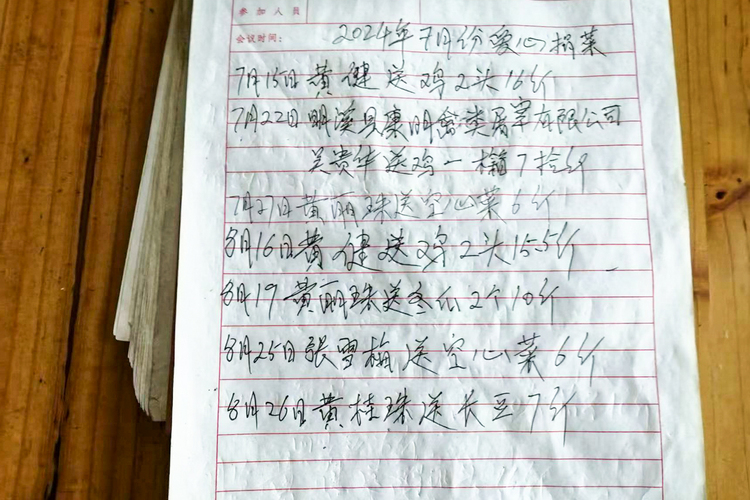 参加人员
会议时间: 2024年7月份爱心捐菜
7月15日黄健送鸡2头16斤
7月22日明溪县康明禽类屠宰有限公司
吴贵华送鸡一箱7拾斤
7月27日黄丽珠送空心菜6斤
8月16日黄健送鸡2头15.5斤
8月19黄丽珠送冬瓜2个10斤
8月25日張雪梅送空心菜6斤
8月26日黄桂珠送长豆7斤